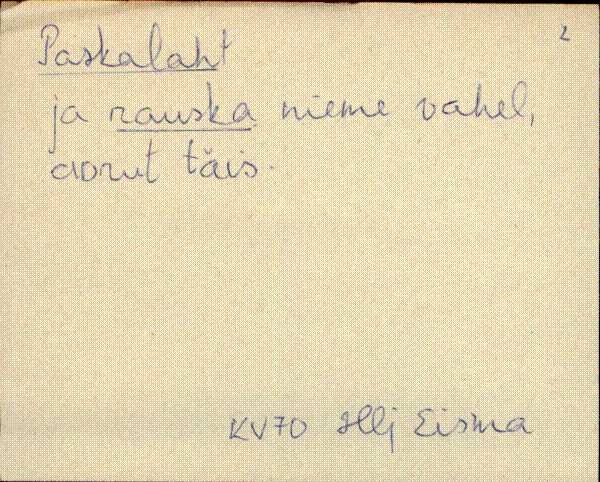 Paskalaht 2
ja rauska nieme vahel,
adrut täis.
KV70 Hlj Eisma